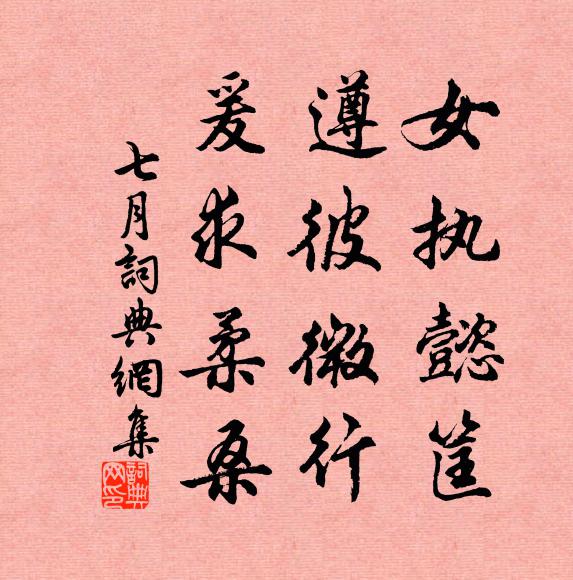 女执懿筐
遵彼微行
爰求柔桑
七月詞典網集
詞典网印